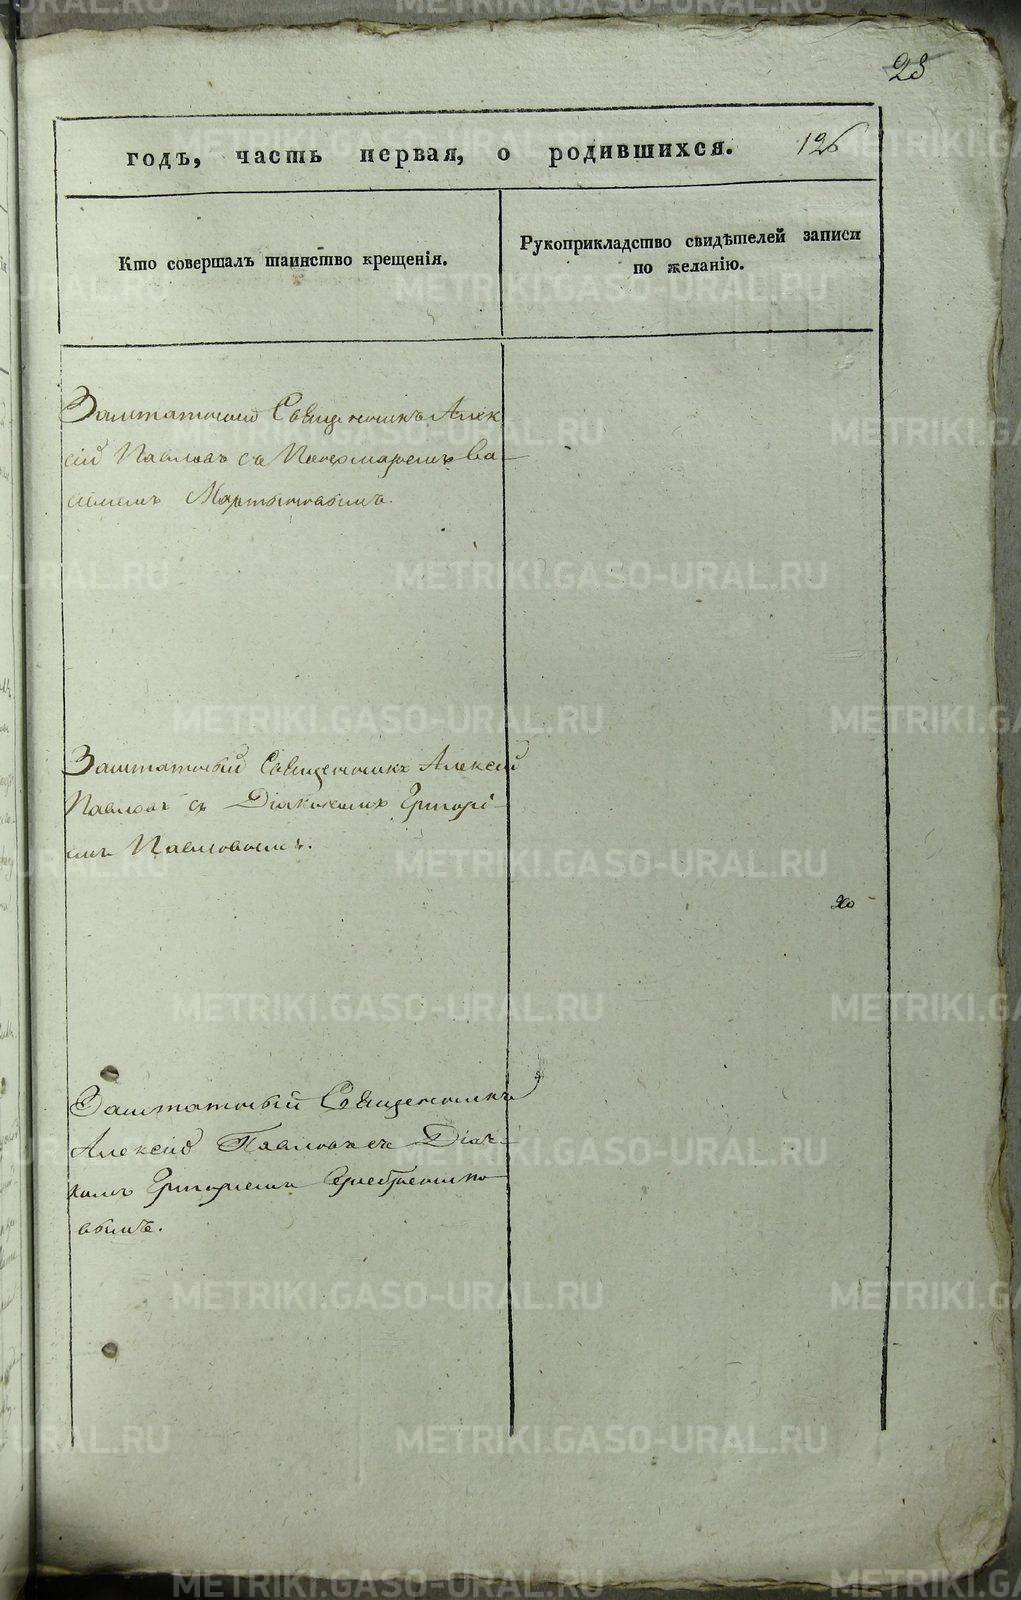 28
годъ, часть первая, о родившихся. 126
Кто совершалъ таинство крещенія.
Рукоприкладство свидѣтелей записи
по желанію.
Заштатный Священникъ Алек
сій Павловъ съ Пономаремъ Ва
силіемъ Мартыновымъ.
Заштатный Священникъ Алексій
Павловъ съ Діакономъ Григорі-
емъ Павловымъ.
Заштатный Священникъ
Алексій Павловъ съ Діач-
комъ Григоріемъ Серебренико
вымъ.
METRIKI.GASO-URAL.RU